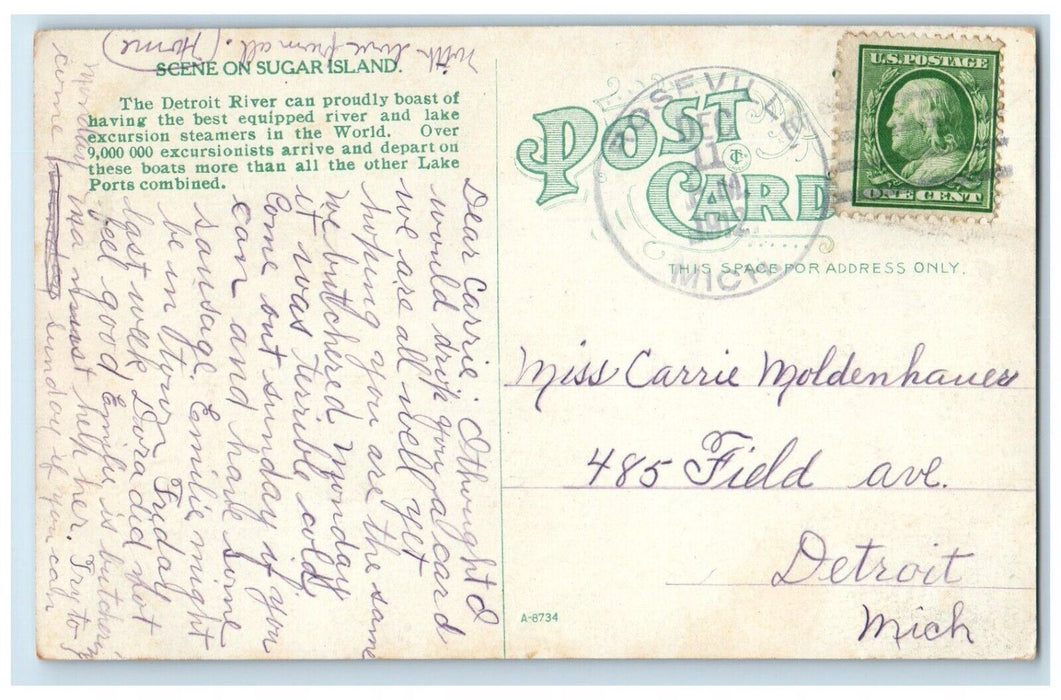 SCENE ON SUGAR ISLAND.
The Detroit River can proudly boast of
having the best equipped river and lake
excursion steamers in the World. Over
9,000 000 excursionists arrive and depart on
these boats more than all the other Lake
Ports combined.
Dear Carrie. I thought I
would drop you a card
we are all well yet
hoping you are the same
we butchered Monday
it was terrible cold,
Come out sunday if you
can and have some
sausage. Emilie might
be in town Friday
last week, Dora did not
feel good, Emilie is butchering
Monday ma must help her. Try to
come sunday if you can
with love from all. (Home)
POST CARD
THIS SPACE FOR ADDRESS ONLY.
ROSEVILLE
DEC
11
1912
MICH.
U.S. POSTAGE
ONE CENT
Miss Carrie Moldenhauer
485 Field ave.
Detroit
Mich
A-8734